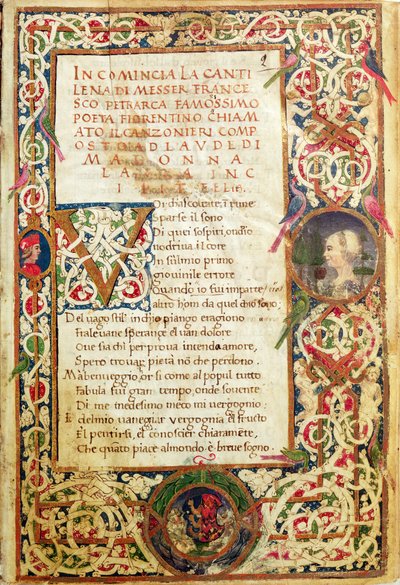 2
INCOMINCIA LA CANTI
LENA DI MESSER FRANCE
SCO PETRARCA FAMOSSIMO
POETA FIORENTINO CHIAM
ATO IL CANZONIERI COMP
OSTO A DLAVDE DI
MADONNA
LAVRA INC
I
VOi chascoltate ī rime
Sparse il sono
Di quei sospiri, ondio
nodriva il core
In sūlmio primo
giovinile errore
Quando io fui imparte
altro hom da quel chio sono:
Del vago stil in chio piango e ragiono
fra le vane speranze el van dolore
Oue sia chi per prova intenda amore,
Spero trovar pietà nō che perdono.
Ma ben veggio, or si come al popul tutto
Fabula fui gran tempo, onde sovente
Di me medesimo meco mi vergogno:
E del mio vaneggiar vergogna e'l frusto
El pentirsi, el conoscier chiaramēte,
Che quāto piace al mondo, è breue sogno.